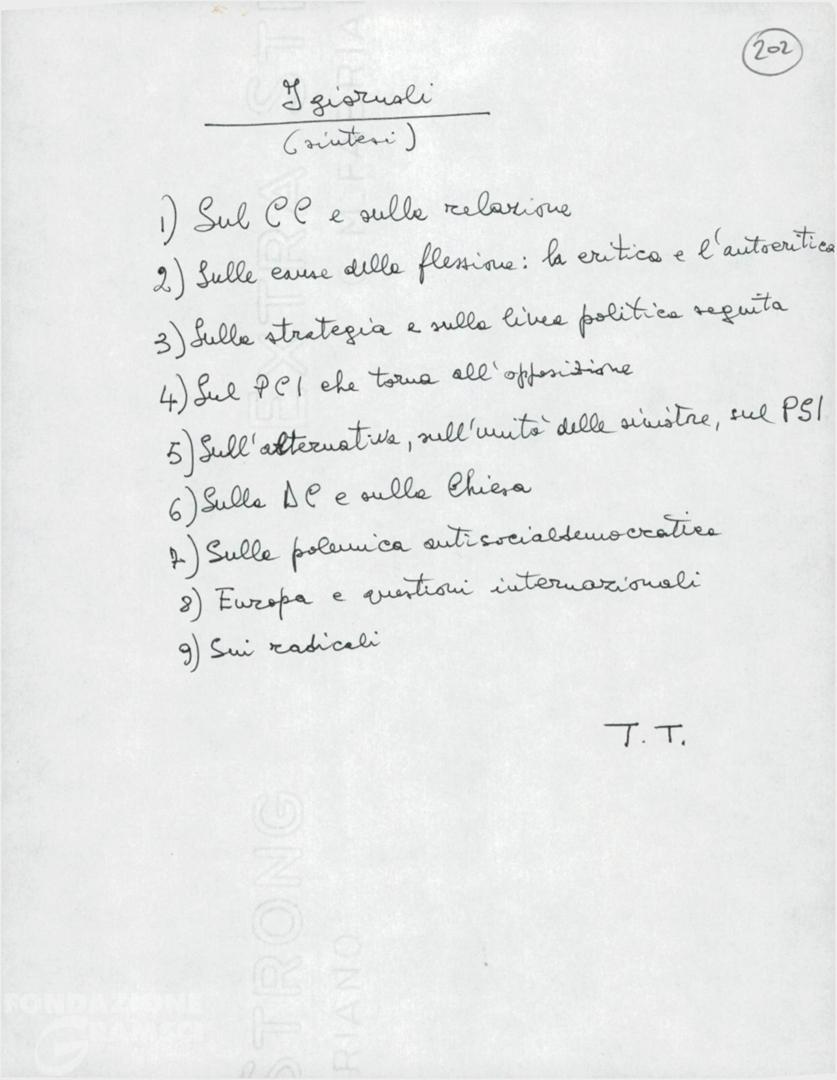 202
I giornali
(sintesi)
1) Sul CC e sulla relazione
2) Sulle cause della flessione: la critica e l'autocritica
3) Sulla strategia e sulla linea politica seguita
4) Sul PCI che torna all'opposizione
5) Sull'alternativa, sull'unità delle sinistre, sul PSI
6) Sulla DC e sulla Chiesa
7) Sulla polemica antisocialdemocratica
8) Europa e questioni internazionali
9) Sui radicali
T. T.
EXTRA STRONG
FABRIANO
STRONG
RIANO
FONDAZIONE
GRAMSCI